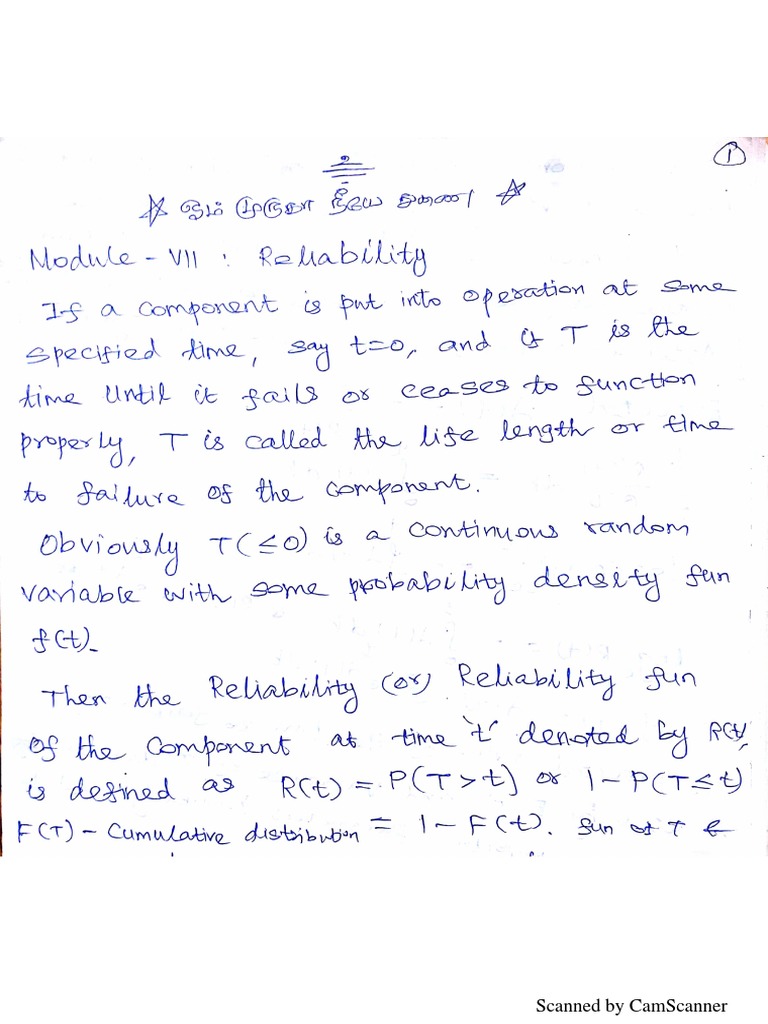 ①
உ
☆ ஓம் முருகா நீயே துணை! ☆
Module - VII : Reliability
If a component is put into operation at some
specified time, say t=0, and if T is the
time until it fails or ceases to function
properly, T is called the life length or time
to failure of the component.
Obviously T(≤0) is a continuous random
variable with some probability density fun
f(t).
Then the Reliability (or) Reliability fun
of the component at time 't' denoted by R(t),
is defined as R(t) = P(T>t] or 1-P(T≤t)
F(T) - Cumulative distribution = 1- F(t). fun of T &
Scanned by CamScanner